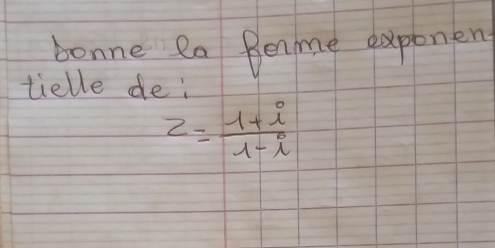 Donne la forme exponen-
tielle de :
z = \frac{1+i}{1-i}